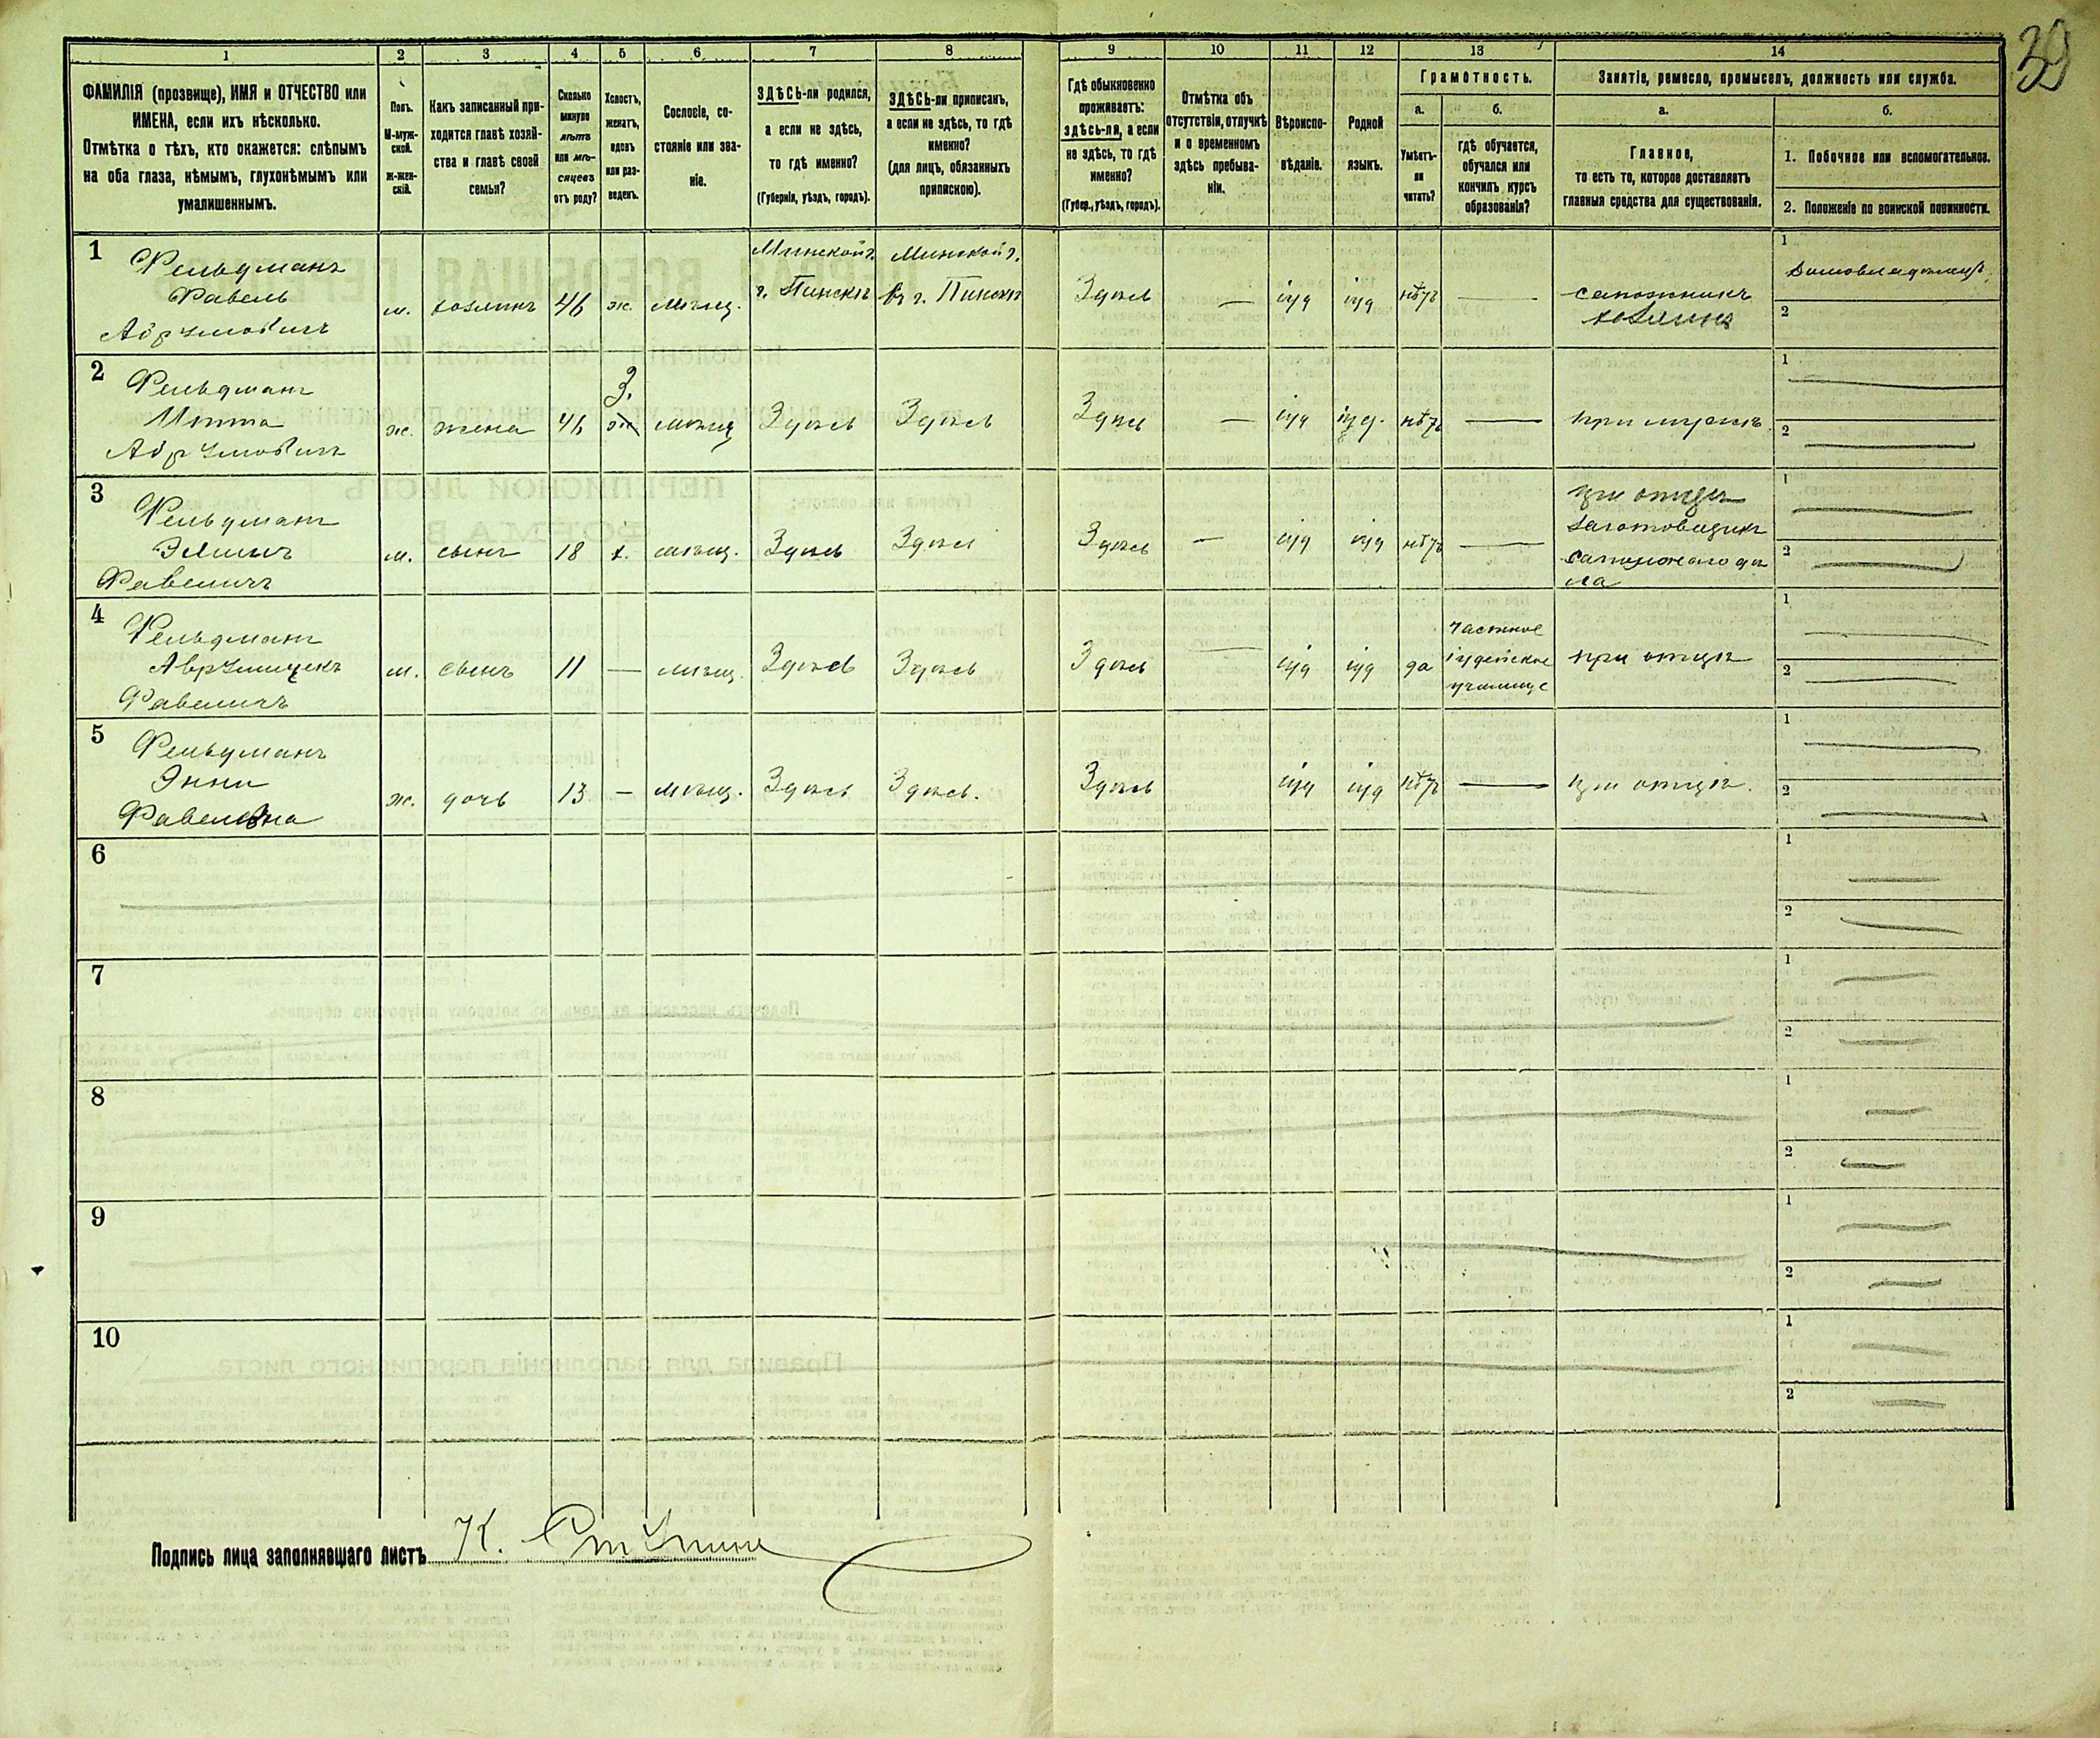 39
1
2
3
4
5
6
7
8
9
10
11
12
13
14
ФАМИЛІЯ (прозвище), ИМЯ и ОТЧЕСТВО или
ИМЕНА, если ихъ нѣсколько.
Отмѣтка о тѣхъ, кто окажется: слѣпымъ
на оба глаза, нѣмымъ, глухонѣмымъ или
умалишеннымъ.
Полъ.
М-муж-
ской.
ж-жен-
скій.
Какъ записанный при-
ходится главѣ хозяй-
ства и главѣ своей
семьи?
Сколько
минуло
лѣтъ
или мѣ-
сяцевъ
отъ роду?
Холостъ,
женатъ,
вдовъ
или раз-
веденъ.
Сословіе, со-
стояніе или зва-
ніе.
ЗДѢСЬ-ли родился,
а если не здѣсь,
то гдѣ именно?
(Губернія, уѣздъ, городъ).
ЗДѢСЬ-ли приписанъ,
а если не здѣсь, то гдѣ
именно?
(для лицъ, обязанныхъ
припискою).
Гдѣ обыкновенно
проживаетъ:
здѣсь-ли, а если
не здѣсь, то гдѣ
именно?
(Губер., уѣздъ, городъ).
Отмѣтка объ
отсутствіи, отлучкѣ
и о временномъ
здѣсь пребыва-
ніи.
Вѣроиспо-
вѣданіе.
Родной
языкъ.
Грамотность.
а.
Умѣетъ-
ли
читать?
б.
гдѣ обучается,
обучался или
кончилъ курсъ
образованія?
Занятіе, ремесло, промыселъ, должность или служба.
а.
Главное,
то есть то, которое доставляетъ
главныя средства для существованія.
б.
1. Побочное или вспомогательное.
2. Положеніе по воинской повинности.
1
Фельдманъ
Фавель
м.
хозяинъ
46
ж.
мѣщ.
Минской г.
г. Пинскъ
Минской г.
г. Пинскъ
Здѣсь
—
іуд
іуд
нѣтъ
—
сапожникъ
хозяинъ
1
Домовладѣлецъ
2
2
Фельдманъ
ж.
жена
46
З.
ж
мѣщ
Здѣсь
Здѣсь
Здѣсь
—
іуд
іуд.
нѣтъ
—
при мужѣ
1
2
3
Фельдманъ
м.
сынъ
18
х.
мѣщ.
Здѣсь
Здѣсь
Здѣсь
—
іуд
іуд
нѣтъ
—
при отцѣ
заготовщикъ
сапожного дѣ
ла
1
2
4
Фельдманъ
м.
сынъ
11
—
мѣщ.
Здѣсь
Здѣсь
Здѣсь
—
іуд
іуд
да
частное
іудейское
училище
при отцѣ
1
2
5
Фельдманъ
Энни
Фавелевна
ж.
дочь
13
—
мѣщ.
Здѣсь
Здѣсь.
Здѣсь
іуд
іуд
нѣтъ
—
при отцѣ.
1
2
6
1
2
7
1
2
8
1
2
9
1
2
10
1
2
Подпись лица заполнявшаго листъ К.